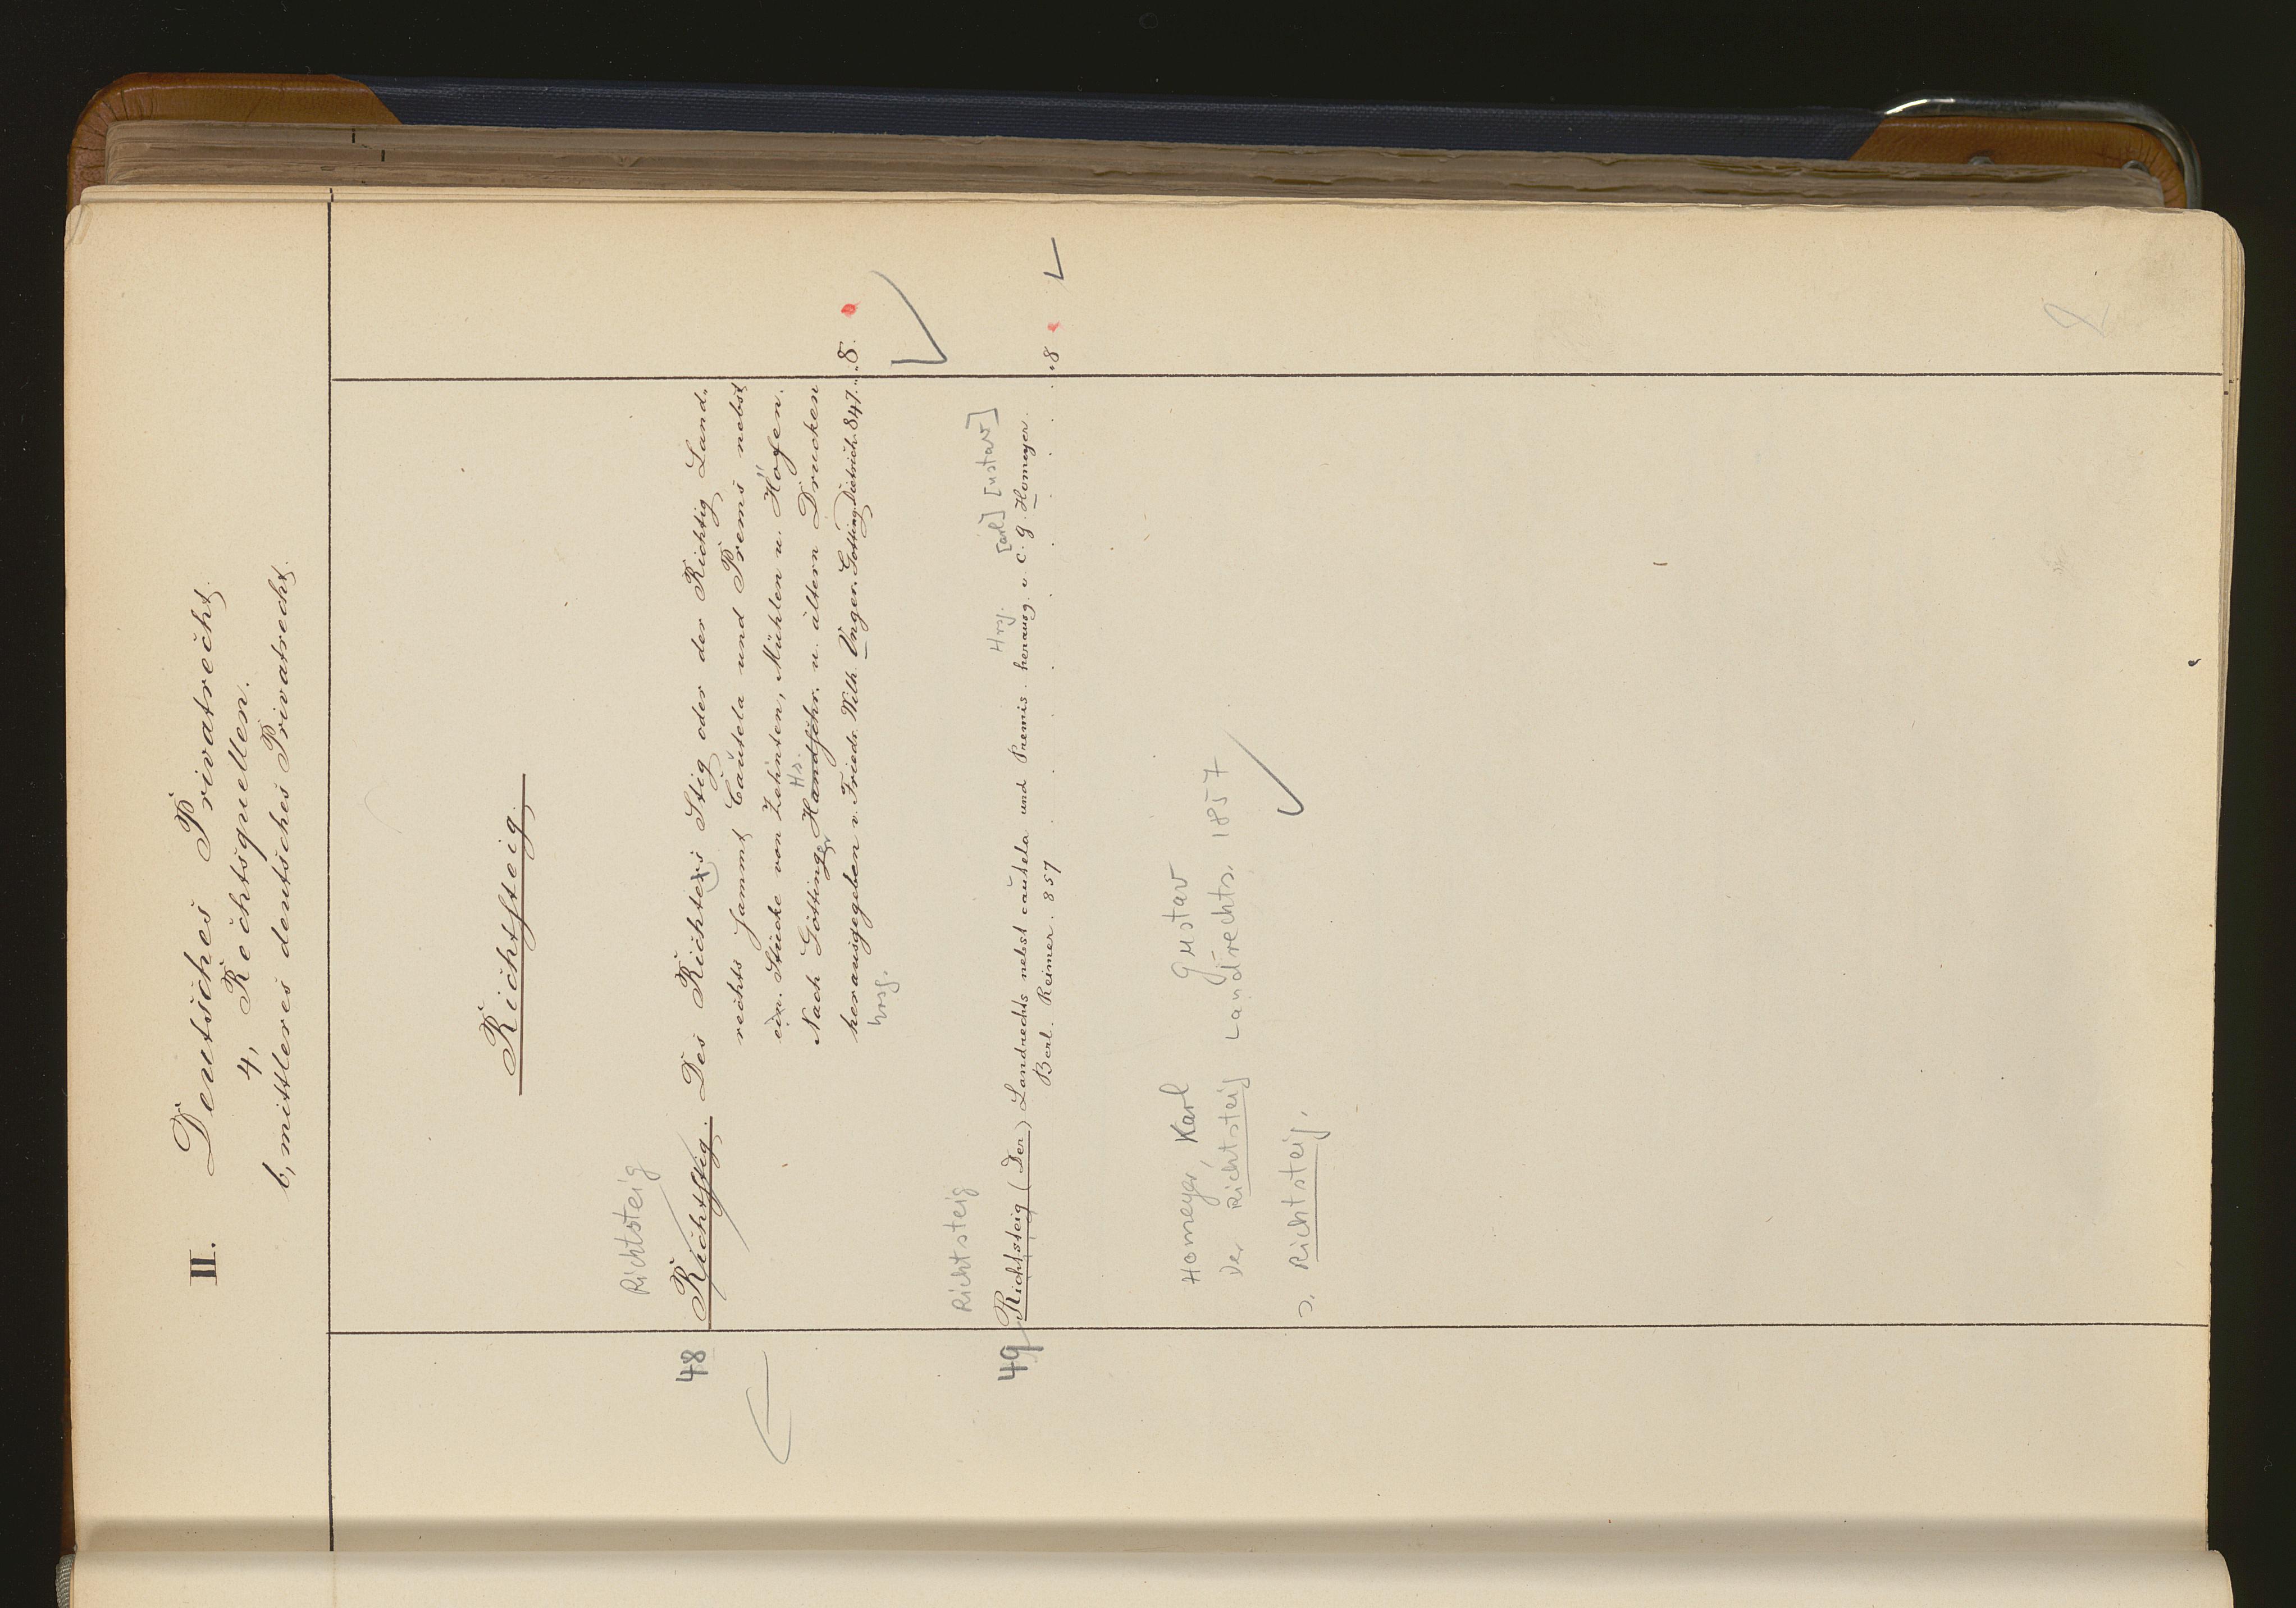 II. Deutsches Privatrecht.
4, Rechtsquellen.
b, mittleres deutsches Privatrecht.
Richtsteig.
Richtsteig
48 Richtstig. Des Richters Stig oder der Richtig Land-
rechts sammt Cautela und Premis nebst
ein. Stücke von Zehnten, Mühlen u. Höfen.
Hs.
Nach Göttinger Handschr. u. ältern Drucken
herausgegeben v. Friedr. Wilh. Unger. Götting. Dietrich. 847. . . 8.
hrsg.
Richtsteig Hrsg. [arl] [ustav]
49 Richtsteig (Der) Landrechts nebst cautela und Premis. herausg. v. C. G. Homeyer.
Berl. Reimer. 857 . . . . . . . . . . 8
Homeyer, Karl Gustav
Der Richtsteig Landrechts. 1857
s. Richtsteig.